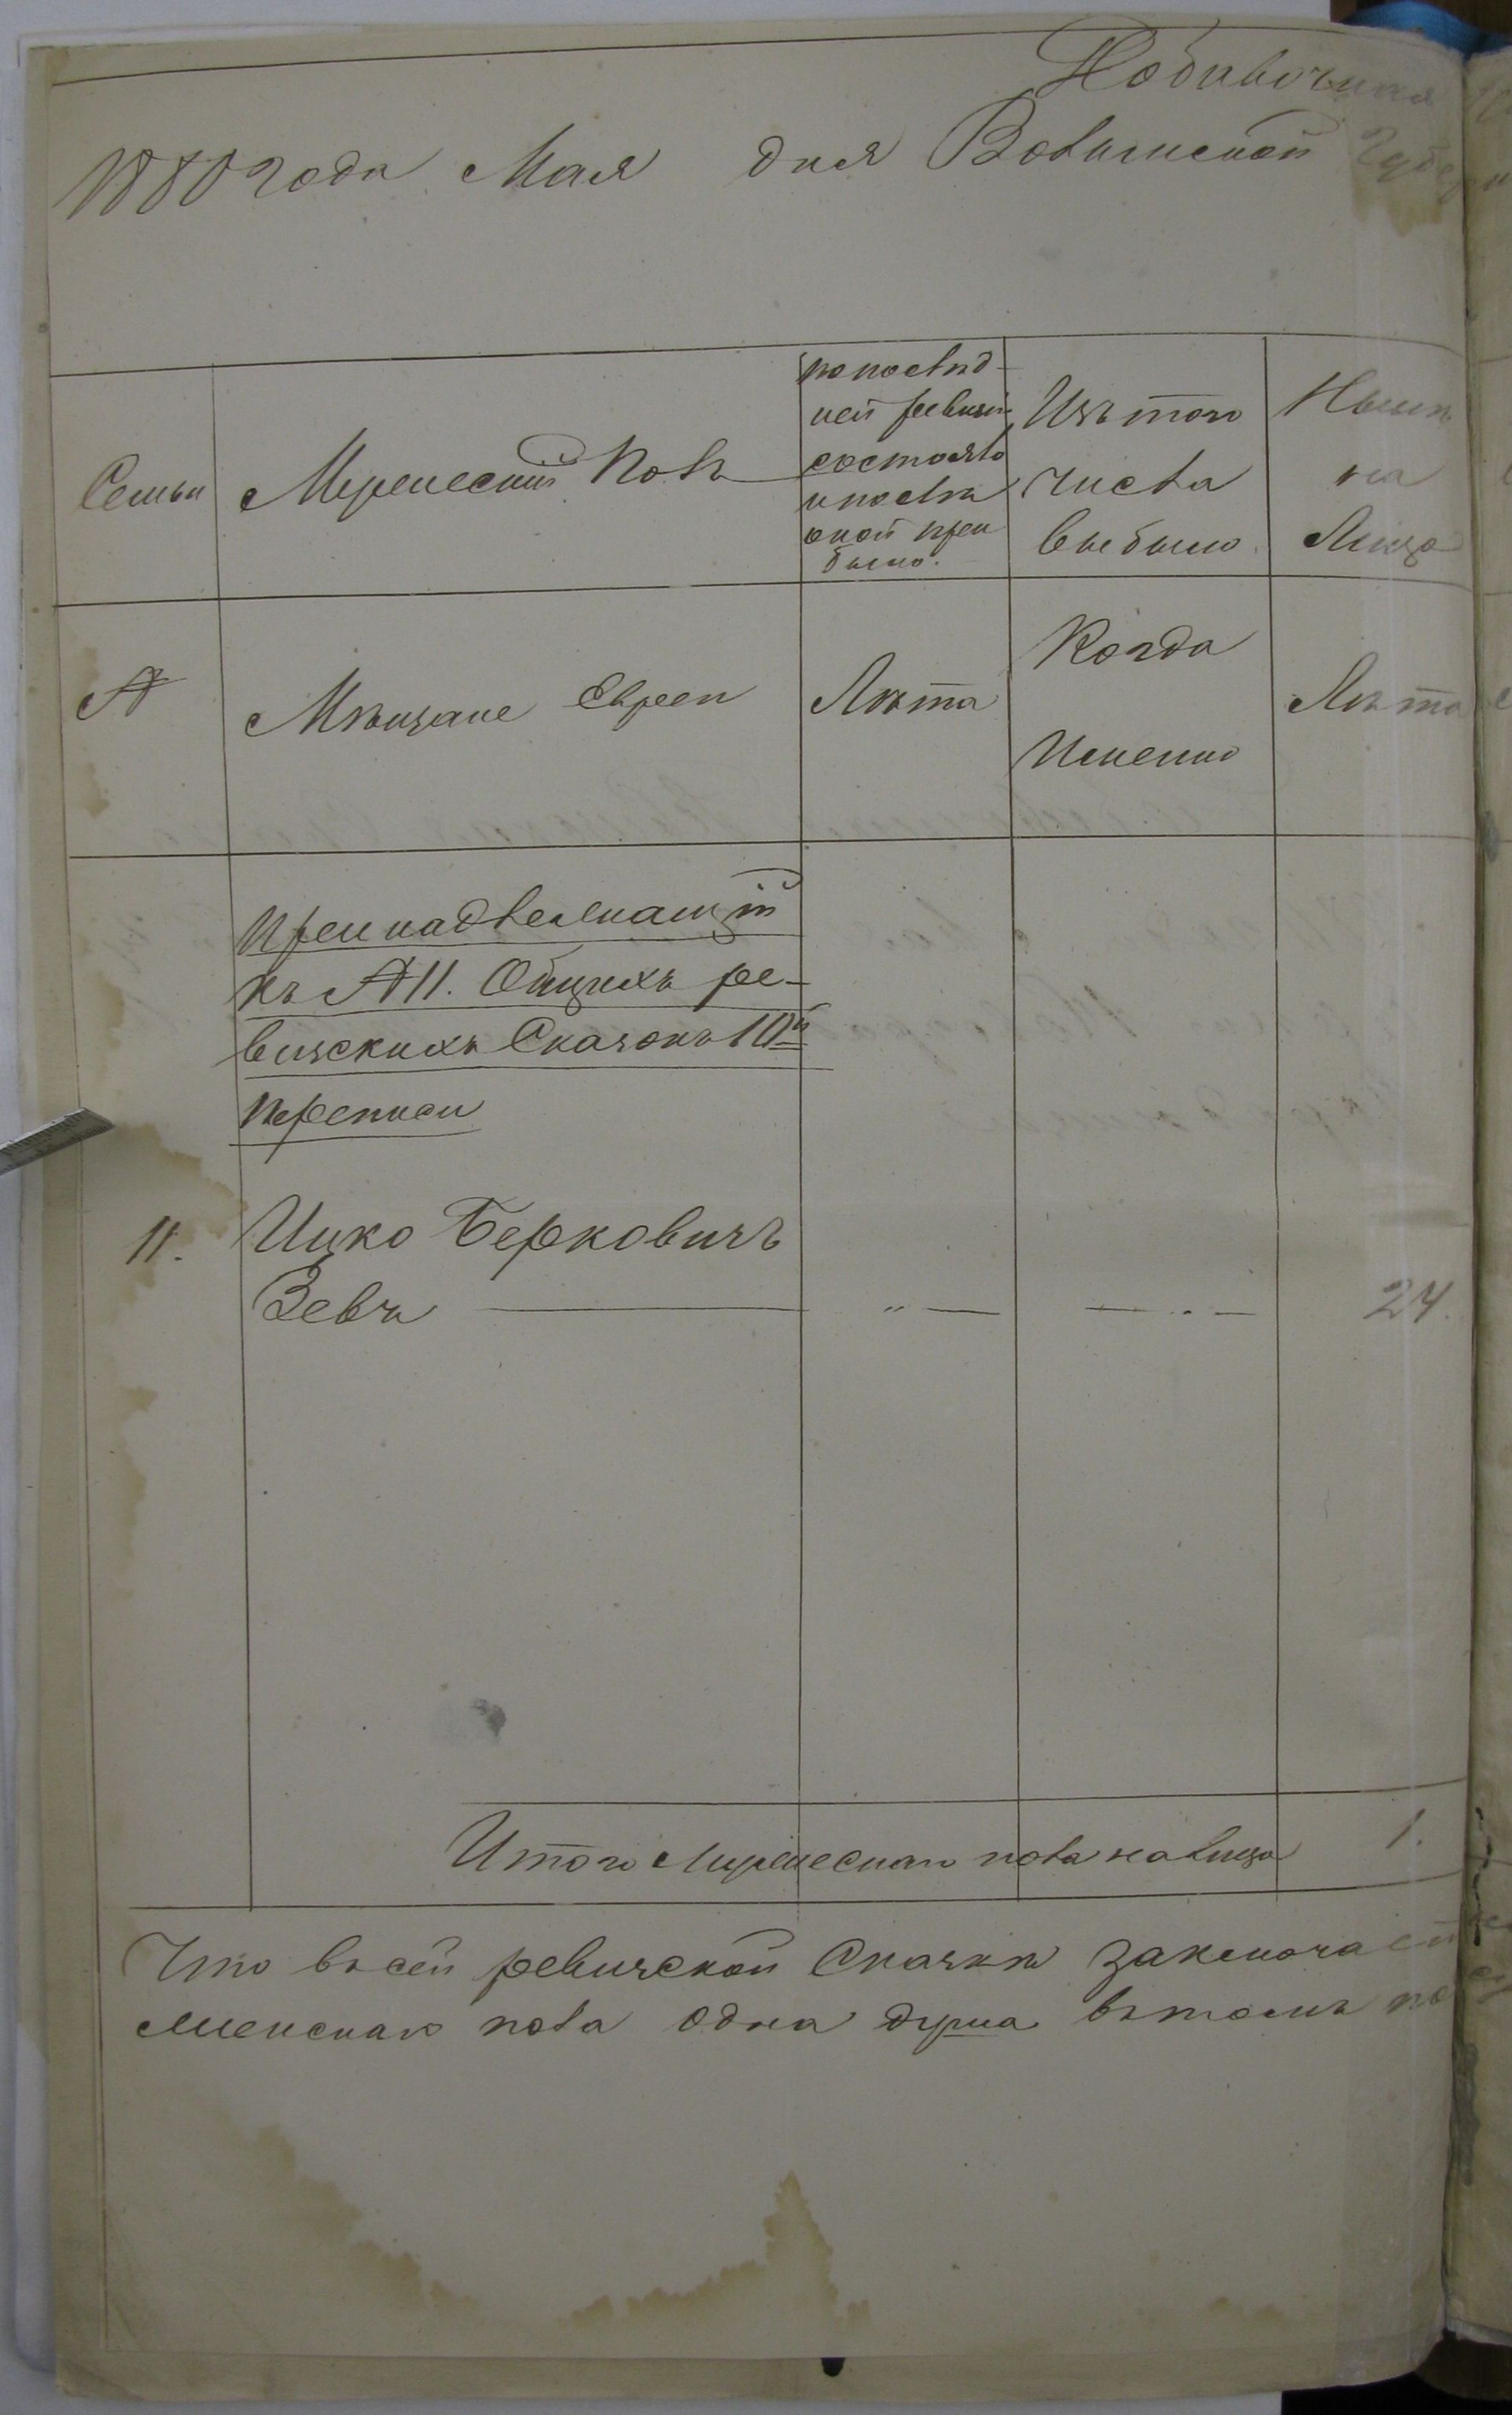 Добавочная
1880 года Мая дня Волынской Губер
Семьи
Мужеский Полъ
по послѣд-
ней ревизіи
состояло
и послѣ
оной при
было.
Изъ того
числа
выбыло.
Нынѣ
на
Лицо
№
Мѣщане Евреи
Лѣта
Когда
Именно
Лѣта
Принадлежащій
къ №11. Общихъ ре-
визскихъ Сказокъ 10й
переписи
11. Ицко Берковичъ
Зевъ — " — — " — 24.
Итого Мужескаго пола на лицо 1.
Что в сей ревизской Сказкѣ заключает
мужскаго пола одна душа въ томъ по